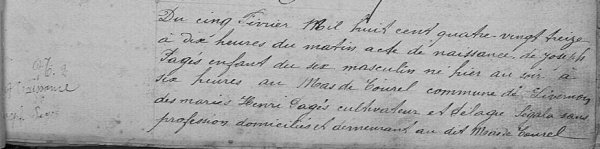 Du cinq Février Mil huit cent quatre-vingt treize
à dix heures du matin acte de naissance de Joseph
Pagès enfant du sexe masculin né hier au soir à
six heures au Mas de Tourel commune de Livernon
des mariés Henri Pagès cultivateur et Pélagie Ségala sans
profession domiciliés et demeurant au dit Mas de Tourel
N. 2
Naissance